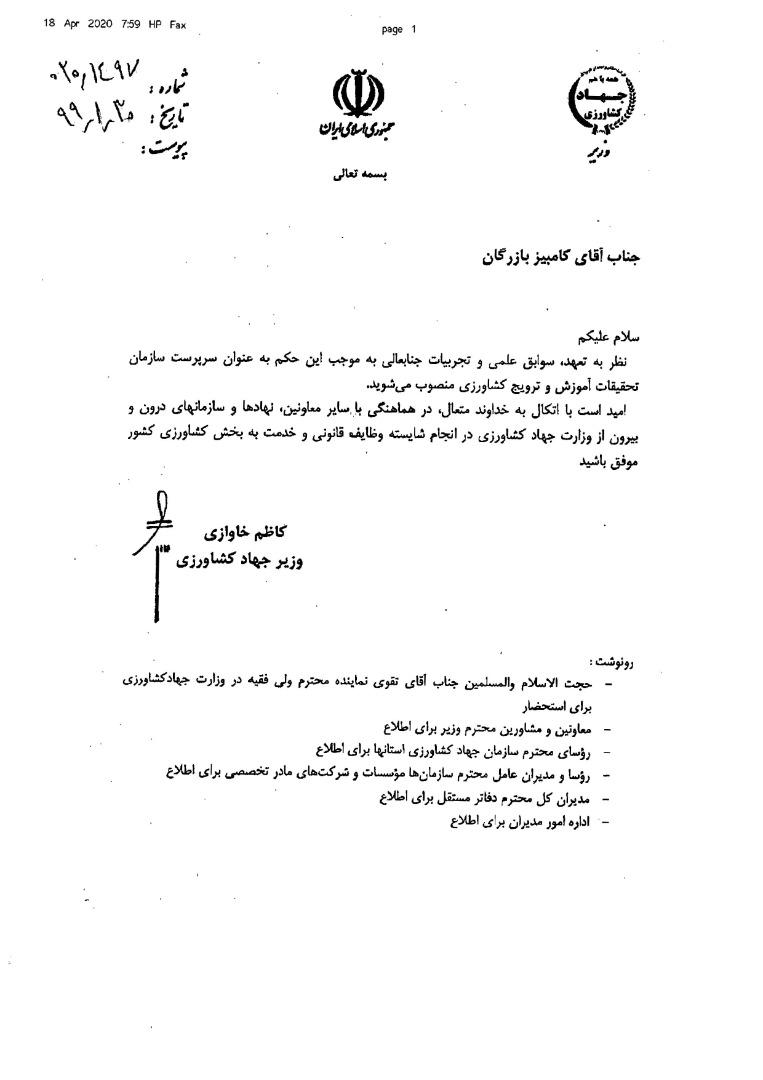 18 Apr 2020 7:59 HP Fax
page 1
همه با هم
جهاد
کشاورزی
وزیر
جمهوری اسلامی ایران
بسمه تعالی
شماره: ۰۲۰/۱۴۹۷
تاریخ: ۹۹/۱/۳۰
پیوست:
جناب آقای کامبیز بازرگان
سلام علیکم
نظر به تعهد، سوابق علمی و تجربیات جنابعالی به موجب این حکم به عنوان سرپرست سازمان
تحقیقات آموزش و ترویج کشاورزی منصوب می‌شوید.
امید است با اتکال به خداوند متعال، در هماهنگی با سایر معاونین، نهادها و سازمانهای درون و
بیرون از وزارت جهاد کشاورزی در انجام شایسته وظایف قانونی و خدمت به بخش کشاورزی کشور
موفق باشید
کاظم خاوازی
وزیر جهاد کشاورزی
رونوشت:
– حجت الاسلام والمسلمین جناب آقای تقوی نماینده محترم ولی فقیه در وزارت جهادکشاورزی
برای استحضار
– معاونین و مشاورین محترم وزیر برای اطلاع
– رؤسای محترم سازمان جهاد کشاورزی استانها برای اطلاع
– رؤسا و مدیران عامل محترم سازمان‌ها مؤسسات و شرکت‌های مادر تخصصی برای اطلاع
– مدیران کل محترم دفاتر مستقل برای اطلاع
– اداره امور مدیران برای اطلاع